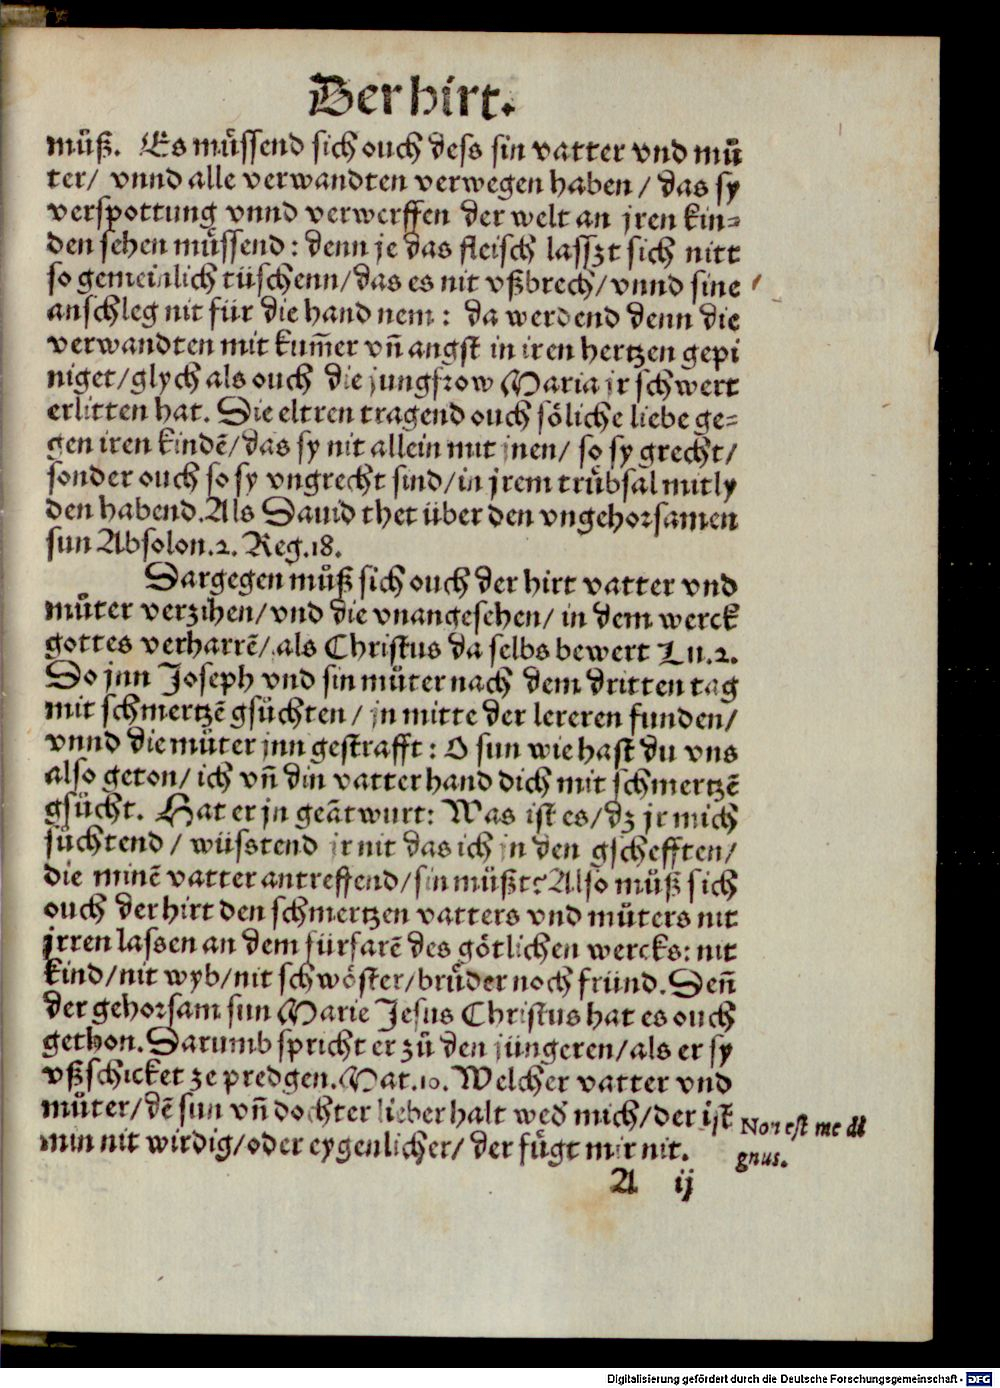 Der hirt.
můß. Es můssend sich ouch dess sin vatter vnd mů
ter/ vnnd alle verwandten verwegen haben/ das sy
verspottung vnnd verwerffen der welt an jren kin⸗
den sehen můssend: denn je das fleisch lasszt sich nitt
so gemeinlich tüschenn/das es nit vßbrech/vnnd sine
anschleg nit für die hand nem: da werdend denn die
verwandten mit kum̃er vñ angst in iren hertzen gepi
niget/glych als ouch die jungfrow Maria jr schwert
erlitten hat. Die eltren tragend ouch söliche liebe ge⸗
gen iren kindẽ/das sy nit allein mit jnen/ so sy grecht/
sonder ouch so sy vngrecht sind/in jrem trübsal mitly
den habend. Als Dauid thet über den vngehorsamen
sun Absolon.2. Reg.18.
Dargegen můß sich ouch der hirt vatter vnd
můter verzihen/vnd die vnangesehen/ in dem werck
gottes verharrẽ/ als Christus da selbs bewert Lu.2.
Do jnn Joseph vnd sin můter nach dem dritten tag
mit schmertzẽ gsůchten/ jn mitte der lereren funden/
vnnd die můter jnn gestrafft: O sun wie hast du vns
also geton/ ich vñ din vatter hand dich mit schmertzẽ
gsůcht. Hat er jn geãtwurt: Was ist es/dz jr mich
sůchtend/ wüsstend jr nit das ich jn den gschefften/
die minẽ vatter antreffend/sin můßt? Also můß sich
ouch der hirt den schmertzen vatters vnd můters nit
jrren lassen an dem fürfarẽ des götlichen wercks: nit
kind/nit wyb/nit schwöster/brůder noch fründ. Deñ
der gehorsam sun Marie Jesus Christus hat es ouch
gethon. Darumb spricht er zů den jüngeren/als er sy
vßschicket ze predgen. Mat.10. Welcher vatter vnd
můter/dẽ sun vñ dochter lieber halt wed̃ mich/der ist
min nit wirdig/oder eygenlicher/ der fůgt mir nit.
Non est me di
gnus.
A ij
Digitalisierung gefördert durch die Deutsche Forschungsgemeinschaft - DFG